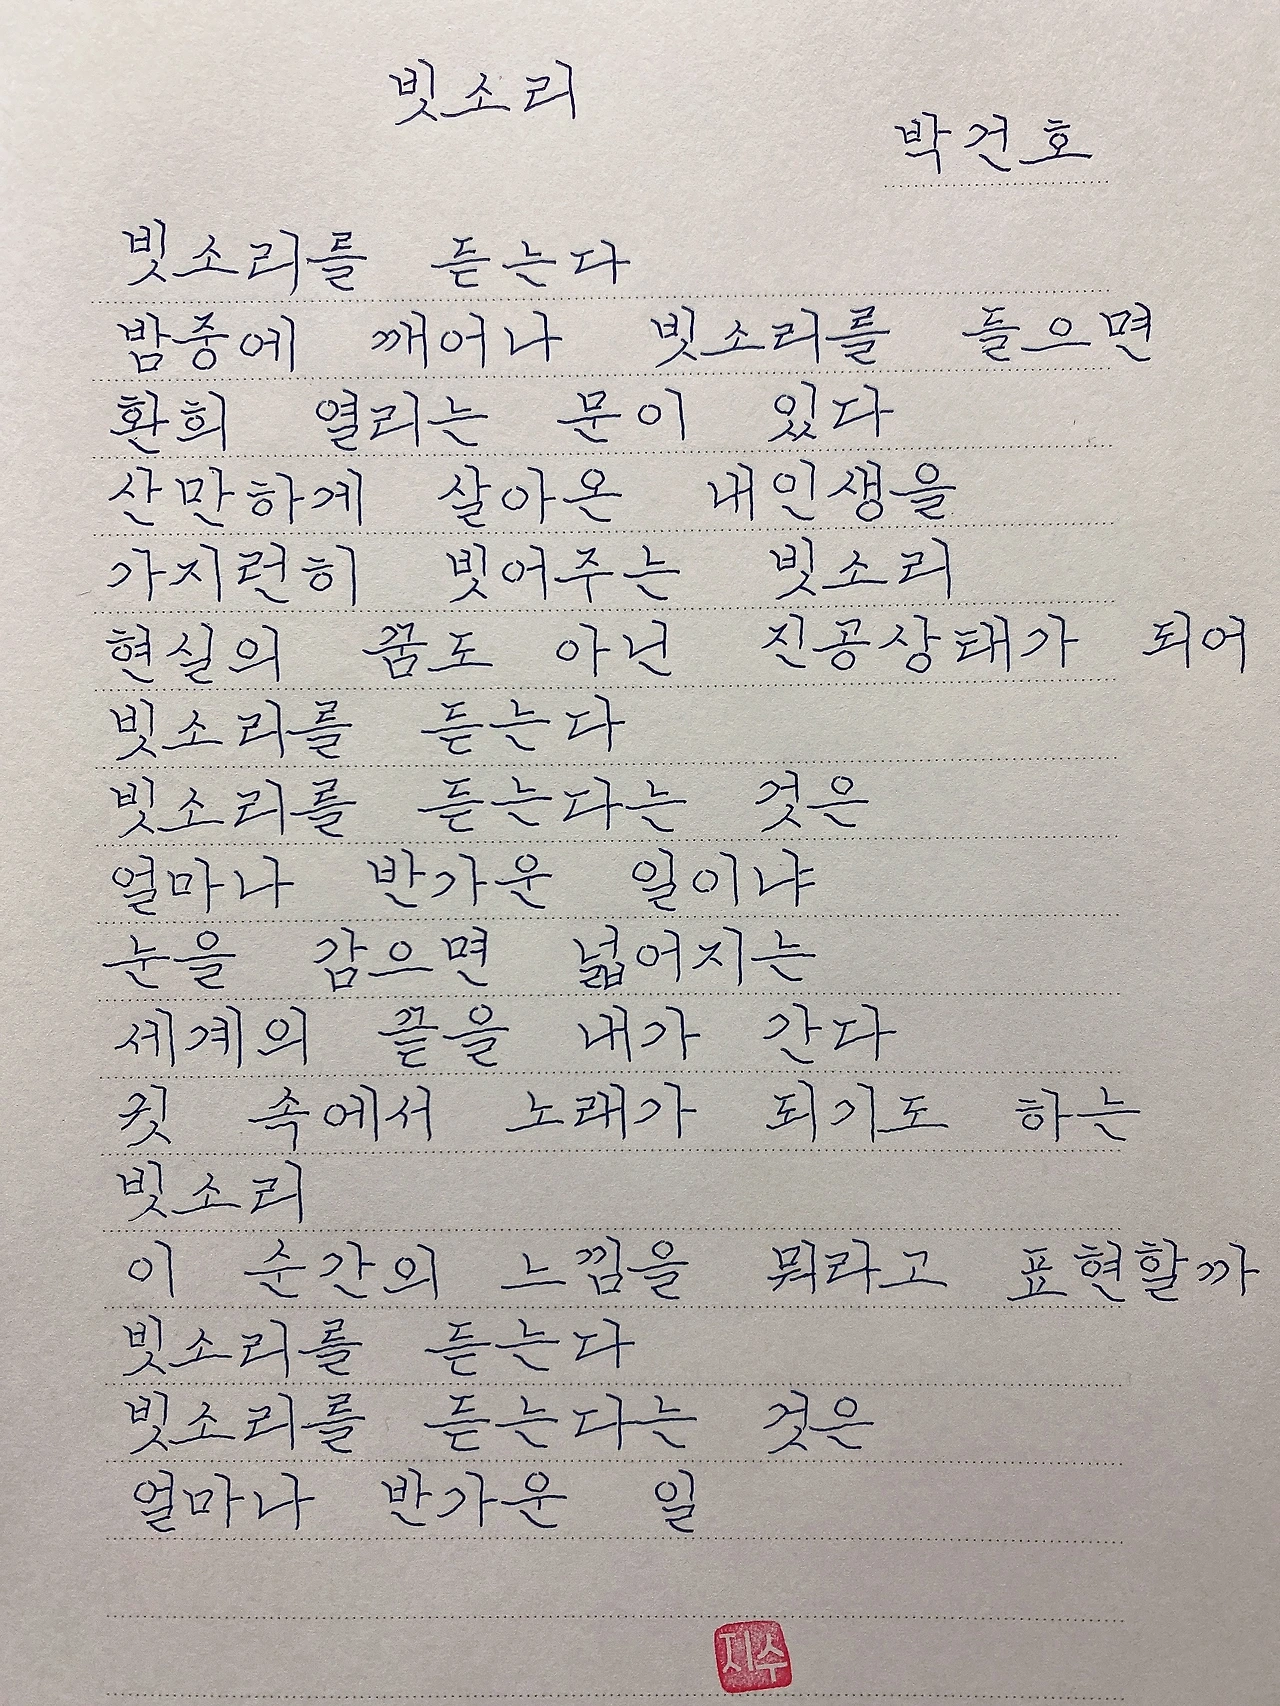 빗소리
박건호
빗소리를 듣는다
밤중에 깨어나 빗소리를 들으면
환희 열리는 문이 있다
산만하게 살아온 내인생을
가지런히 빗어주는 빗소리
현실의 꿈도 아닌 진공상태가 되어
빗소리를 듣는다
빗소리를 듣는다는 것은
얼마나 반가운 일이냐
눈을 감으면 넓어지는
세계의 끝을 내가 간다
귓 속에서 노래가 되기도 하는
빗소리
이 순간의 느낌을 뭐라고 표현할까
빗소리를 듣는다
빗소리를 듣는다는 것은
얼마나 반가운 일
지수